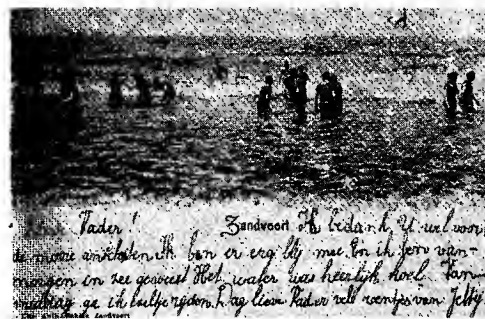 Vader! Zandvoort Ik bedank U wel voor
de mooie ansichten. Ik ben er erg blij mee. En ik ben van-
morgen in zee geweest Het water was heerlijk koel. Van-
middag ga ik ezeltje rijden. Dag lieve Vader vele zoentjes van Jetty
Zandvoort